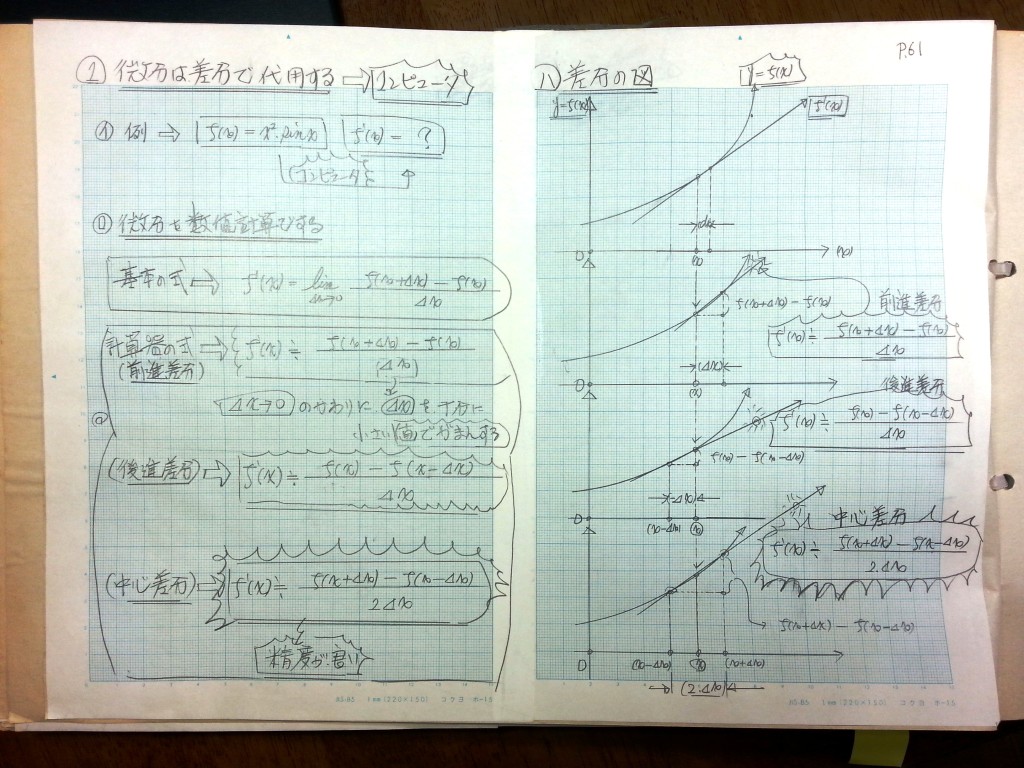 ① 微分は差分で代用する ⇨ コンピュータ
㋑ 例 ⇨ f(x) = x²·sin x f'(x) = ?
コンピュータ
㋺ 微分を数値計算でする
基本の式 ⇨ f'(x) = lim Δx→0 f(x+Δx) − f(x) / Δx
計算器の式 ⇨ f'(x) ≒ f(x+Δx) − f(x) / (Δx)
(前進差分)
Δx→0 のかわりに Δx を十分に
小さい値でがまんする
(後進差分) ⇨ f'(x) ≒ f(x) − f(x−Δx) / Δx
(中心差分) ⇨ f'(x) ≒ f(x+Δx) − f(x−Δx) / 2Δx
精度が君い
P.61
ハ) 差分の図
y = f(x)
y = f(x)
f'(x)
dx
0 (x) (x)
f(x+Δx) − f(x)
前進差分
f'(x) ≒ f(x+Δx) − f(x) / Δx
(Δx)
0 (x)
後進差分
f'(x) ≒ f(x) − f(x−Δx) / Δx
f(x) − f(x−Δx)
Δx
0 (x−Δx) (x)
中心差分
f'(x) ≒ f(x+Δx) − f(x−Δx) / 2Δx
f(x+Δx) − f(x−Δx)
0 (x−Δx) (x) (x+Δx)
(2·Δx)
1mm (220×150) コクヨ ホ-15
1mm (220×150) コクヨ ホ-15